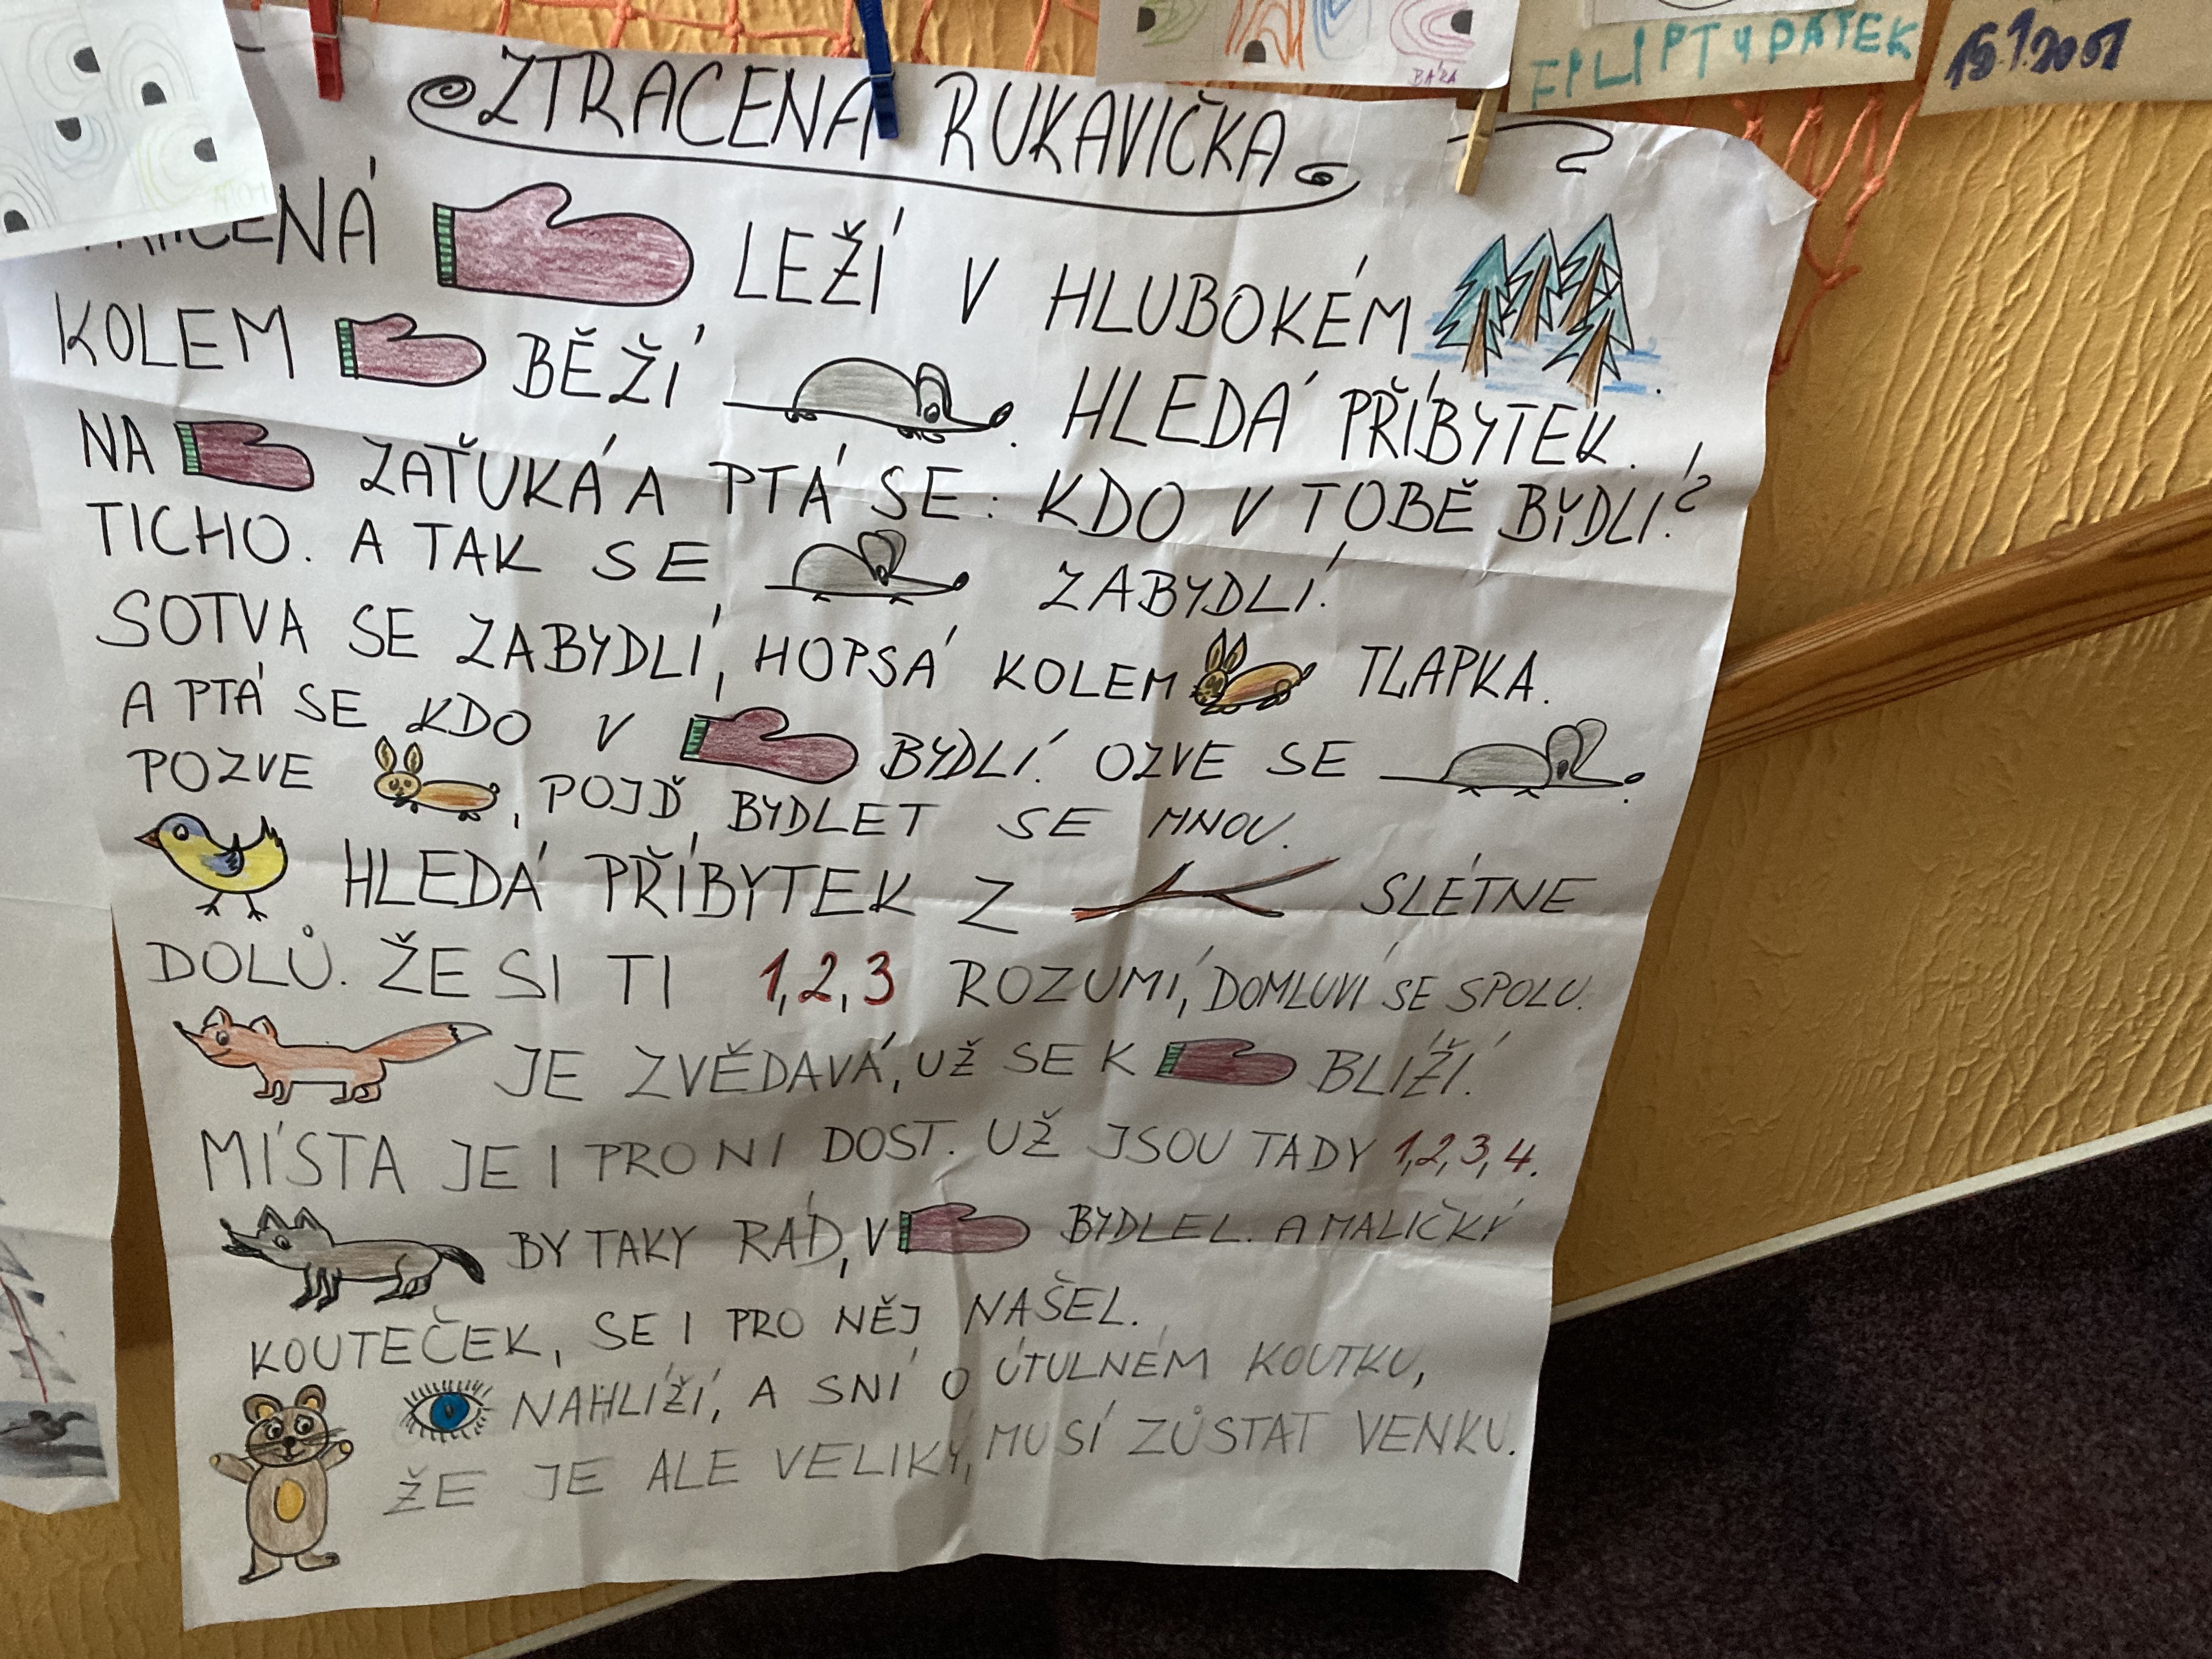 BÁRA
FILIP TVDÁTEK
15.1.2001
ZTRACENÁ RUKAVIČKA
LEŽÍ V HLUBOKÉM .
KOLEM BĚŽÍ . HLEDÁ PŘÍBYTEK.
NA ZAŤUKÁ A PTÁ SE: KDO V TOBĚ BYDLÍ?
TICHO. A TAK SE ZABYDLÍ.
SOTVA SE ZABYDLÍ, HOPSÁ KOLEM TLAPKA.
A PTÁ SE KDO V BYDLÍ. OZVE SE .
POZVE , POJĎ BYDLET SE MNOU.
HLEDÁ PŘÍBYTEK Z SLÉTNE
DOLŮ. ŽE SI TI 1,2,3 ROZUMÍ, DOMLUVÍ SE SPOLU.
JE ZVĚDAVÁ, UŽ SE K BLÍŽÍ.
MÍSTA JE I PRO NI DOST. UŽ JSOU TADY 1,2,3,4.
BY TAKY RÁD, V BYDLEL. A MALIČKÝ
KOUTEČEK, SE I PRO NĚJ NAŠEL.
NAHLÍŽÍ, A SNÍ O ÚTULNÉM KOUTKU,
ŽE JE ALE VELIKÝ, MUSÍ ZŮSTAT VENKU.